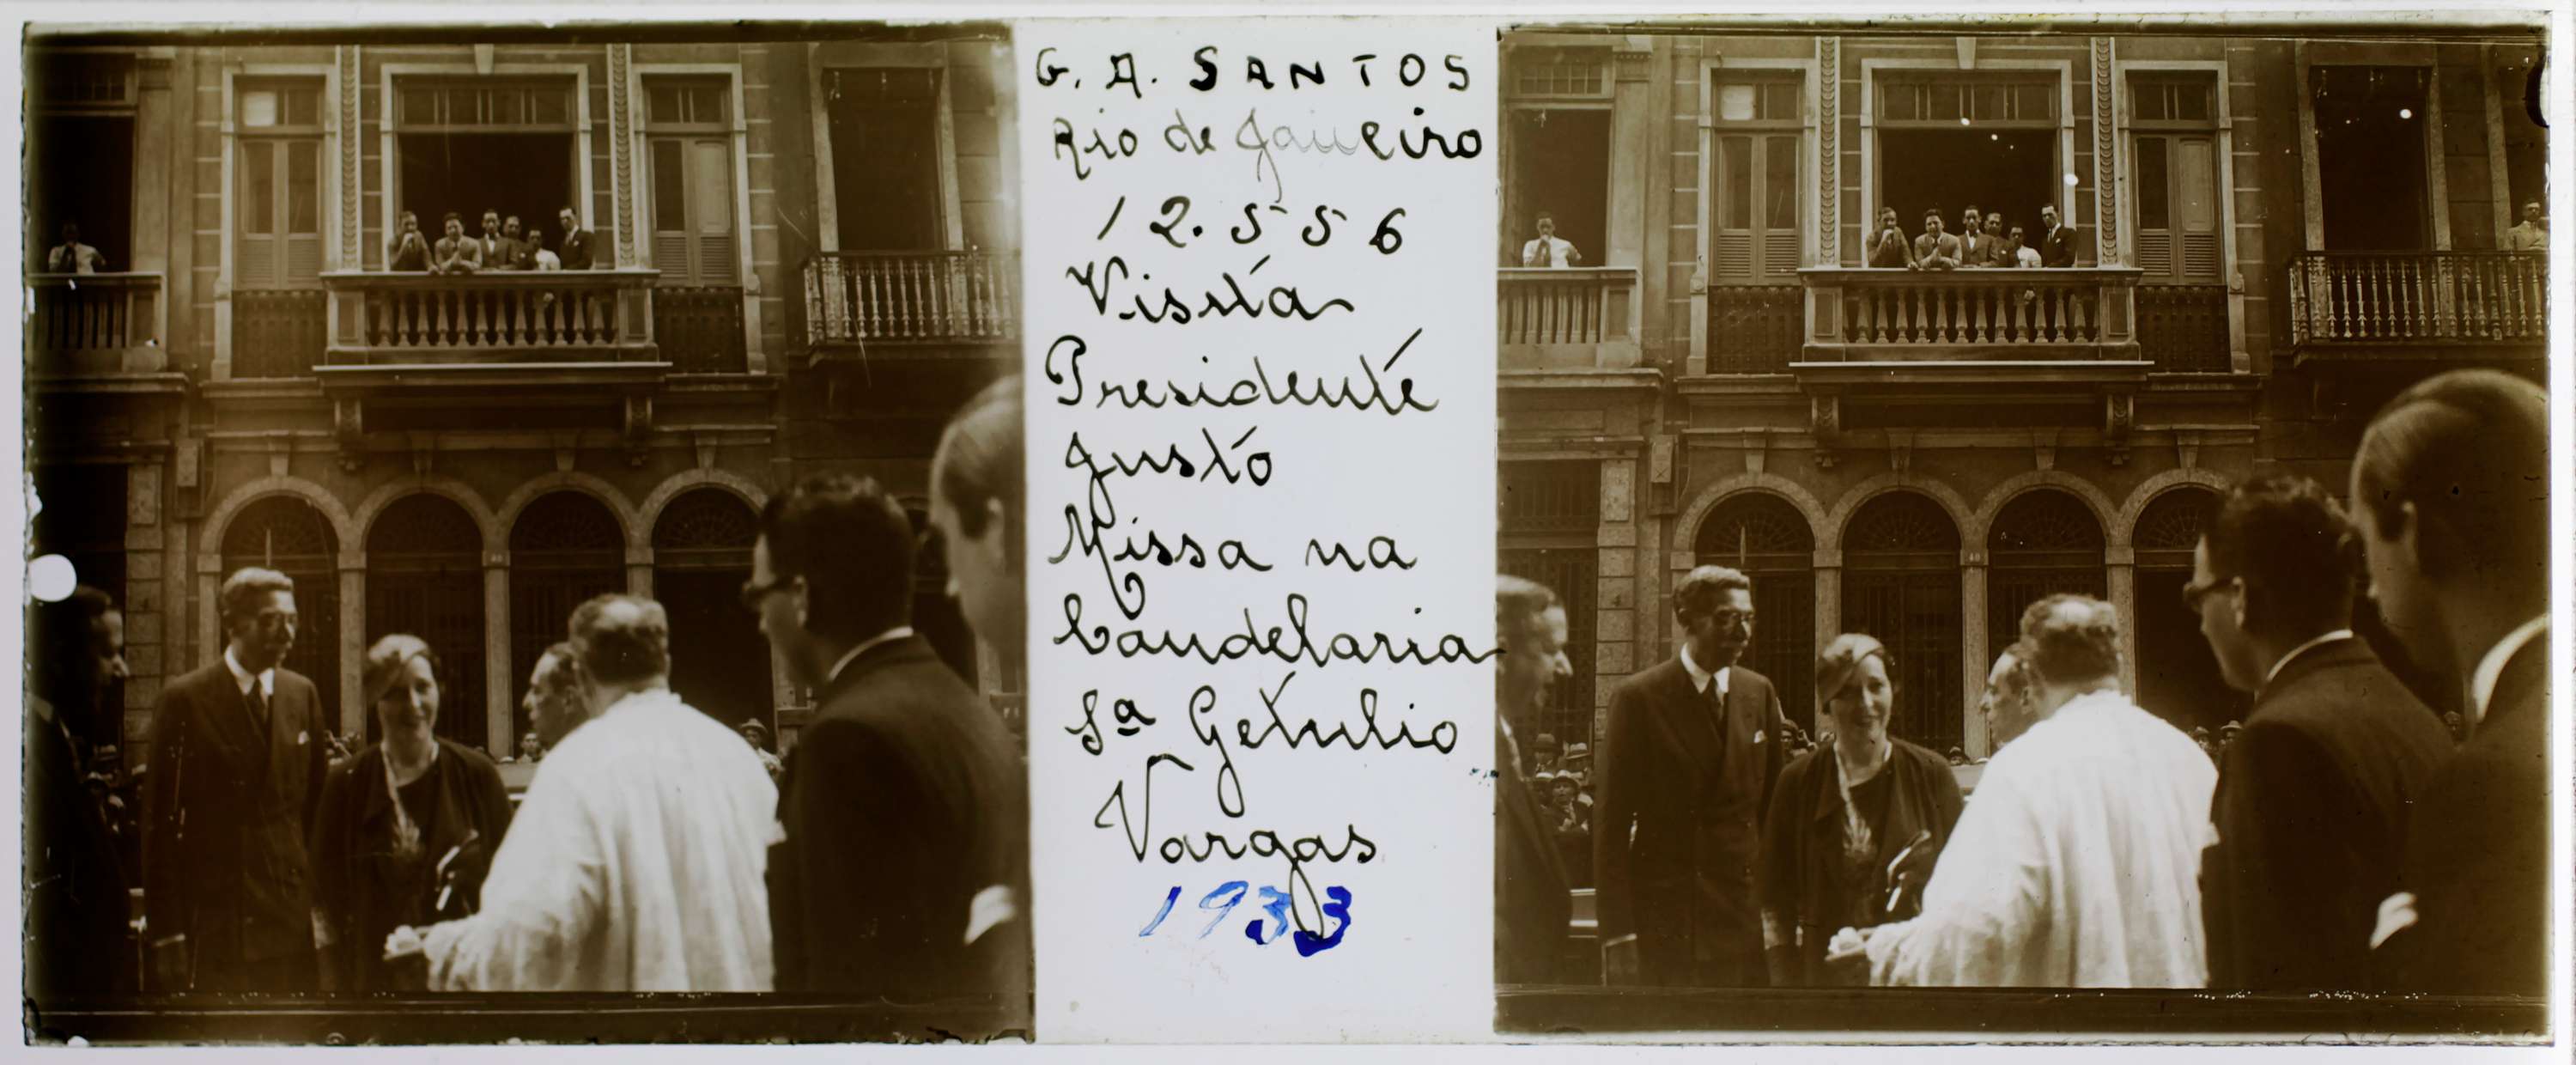 G. A. SANTOS
Rio de Janeiro
12.556
Visita
Presidente
Justo
Missa na
Candelaria
Sª Getulio
Vargas
1933